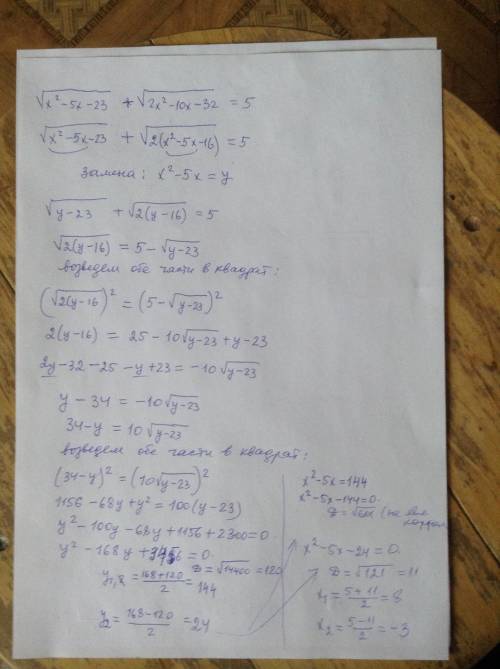 √(x²-5x-23) + √(2x²-10x-32) = 5
√(x²-5x-23) + √(2(x²-5x-16)) = 5
замена: x²-5x = y
√(y-23) + √(2(y-16)) = 5
√(2(y-16)) = 5 - √(y-23)
возведем обе части в квадрат:
(√(2(y-16))² = (5 - √(y-23))²
2(y-16) = 25 - 10√(y-23) + y - 23
2y - 32 - 25 - y + 23 = -10√(y-23)
y - 34 = -10√(y-23)
34 - y = 10√(y-23)
возведем обе части в квадрат:
(34-y)² = (10√(y-23))²
1156 - 68y + y² = 100(y-23)
y² - 100y - 68y + 1156 + 2300 = 0
y² - 168y + 3456 = 0
D = √14400 = 120
y₁,₂ = (168+120)/2 = 144
y₂ = (168-120)/2 = 24
x²-5x = 144
x²-5x-144 = 0
D = √601 (не
x²-5x-24 = 0
D = √121 = 11
x₁ = (5+11)/2 = 8
x₂ = (5-11)/2 = -3